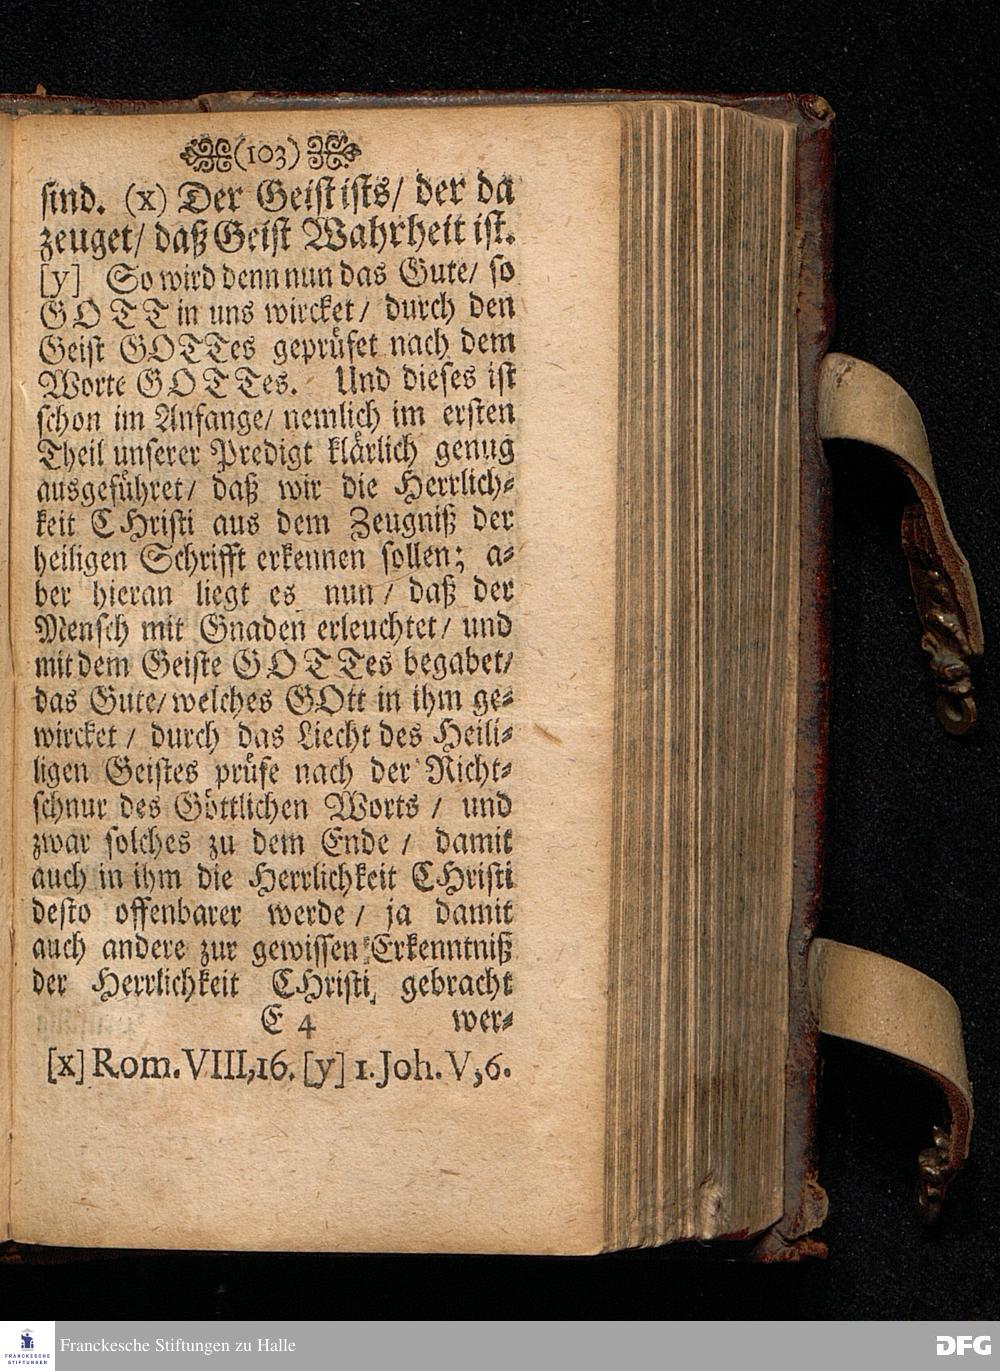 (103)
sind. (x) Der Geist ists/ der da
zeuget/ daß Geist Wahrheit ist.
[y] So wird denn nun das Gute/ so
GOTT in uns wircket/ durch den
Geist GOTTes geprüfet nach dem
Worte GOTTes. Und dieses ist
schon im Anfange/ nemlich im ersten
Theil unserer Predigt klärlich genug
ausgeführet/ daß wir die Herrlich-
keit CHristi aus dem Zeugniß der
heiligen Schrifft erkennen sollen; a-
ber hieran liegt es nun/ daß der
Mensch mit Gnaden erleuchtet/ und
mit dem Geiste GOTTes begabet/
das Gute/ welches GOtt in ihm ge-
wircket/ durch das Liecht des Heili-
ligen Geistes prüfe nach der Richt-
schnur des Göttlichen Worts/ und
zwar solches zu dem Ende/ damit
auch in ihm die Herrlichkeit CHristi
desto offenbarer werde/ ja damit
auch andere zur gewissen Erkenntniß
der Herrlichkeit CHristi gebracht
E 4 wer-
[x] Rom. VIII, 16. [y] 1. Joh. V, 6.
FRANCKESCHE STIFTUNGEN
Franckesche Stiftungen zu Halle
DFG